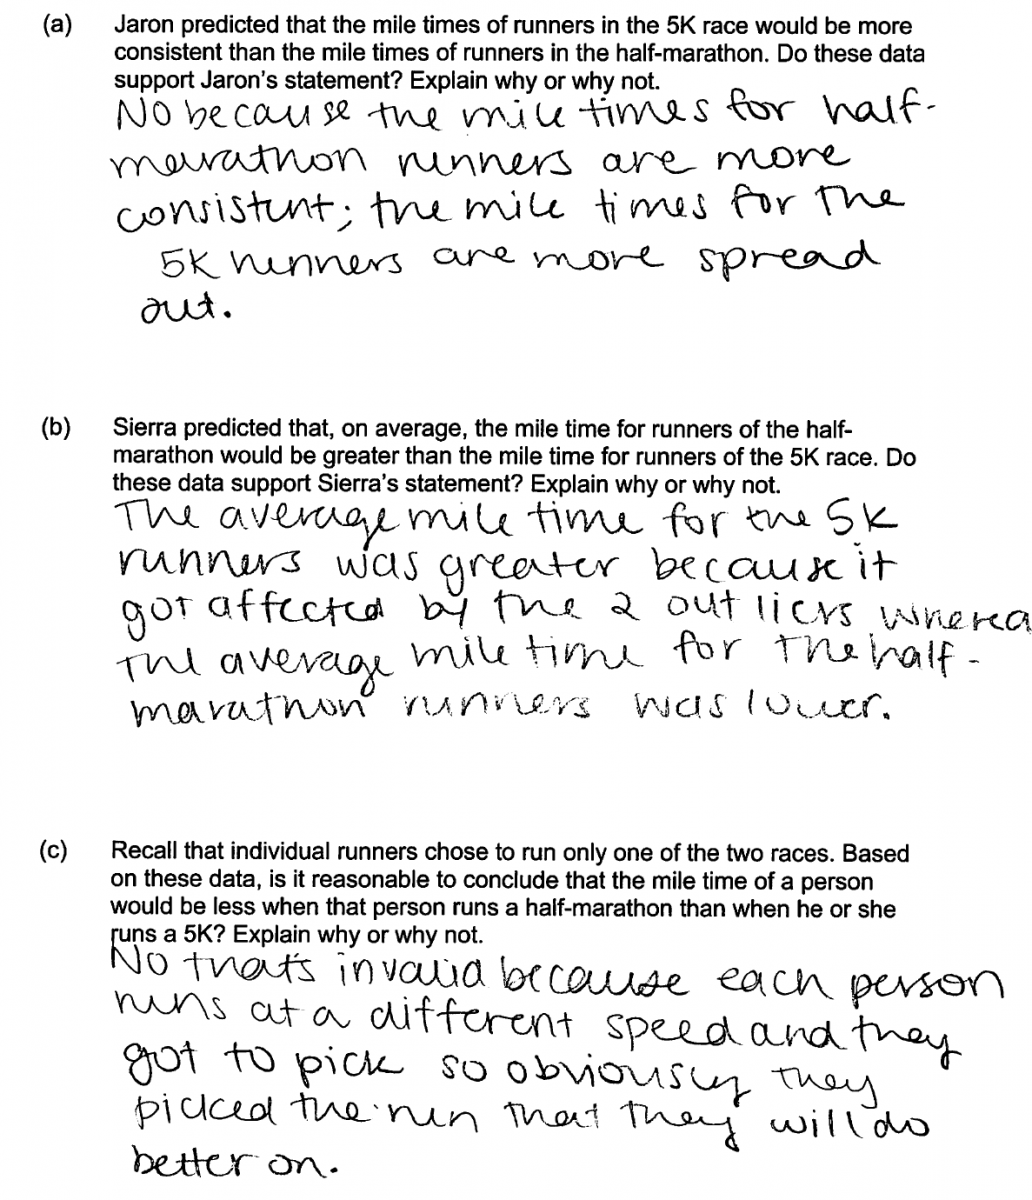 (a) Jaron predicted that the mile times of runners in the 5K race would be more
consistent than the mile times of runners in the half-marathon. Do these data
support Jaron's statement? Explain why or why not.
No because the mile times for half-
marathon runners are more
consistent; the mile times for the
5K runners are more spread
out.
(b) Sierra predicted that, on average, the mile time for runners of the half-
marathon would be greater than the mile time for runners of the 5K race. Do
these data support Sierra's statement? Explain why or why not.
The average mile time for the 5K
runners was greater because it
got affected by the 2 outliers wherea
The average mile time for the half-
marathon runners was lower.
(c) Recall that individual runners chose to run only one of the two races. Based
on these data, is it reasonable to conclude that the mile time of a person
would be less when that person runs a half-marathon than when he or she
runs a 5K? Explain why or why not.
No that's invalid because each person
runs at a different speed and they
got to pick so obviously they
picked the run that they will do
better on.